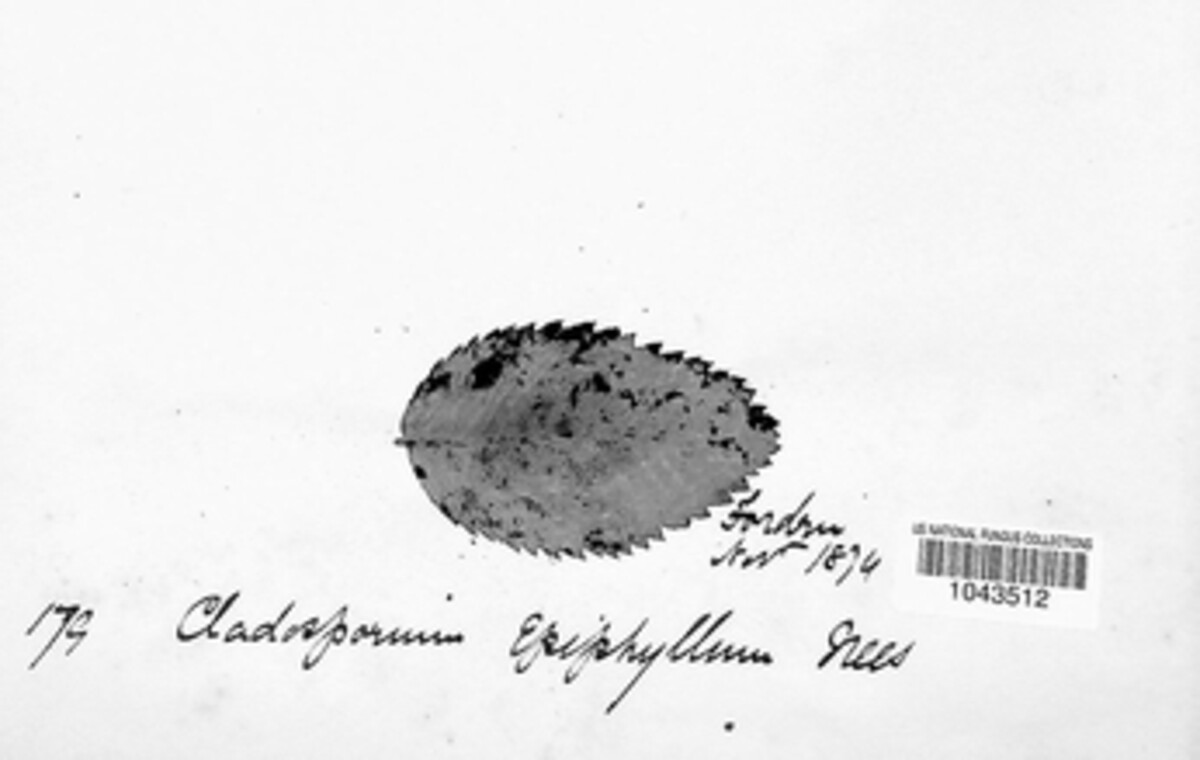 Nov 1874
US NATIONAL FUNGUS COLLECTIONS
1043512
179 Cladosporium Epiphyllum Nees